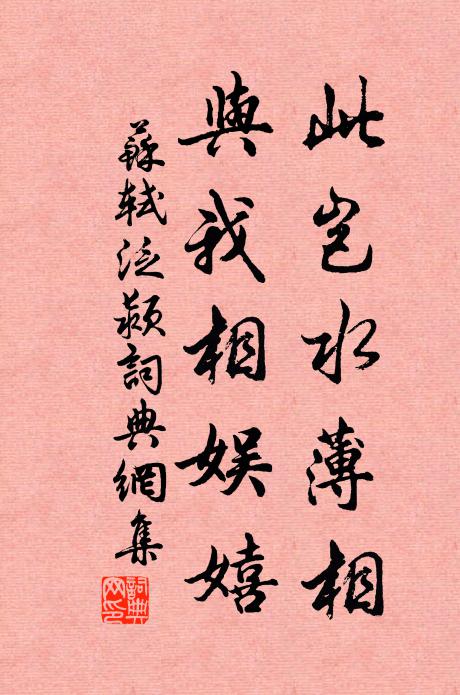 此岂水薄相
與我相娱嬉
蘇軾泛潁詞典網集
詞典网印